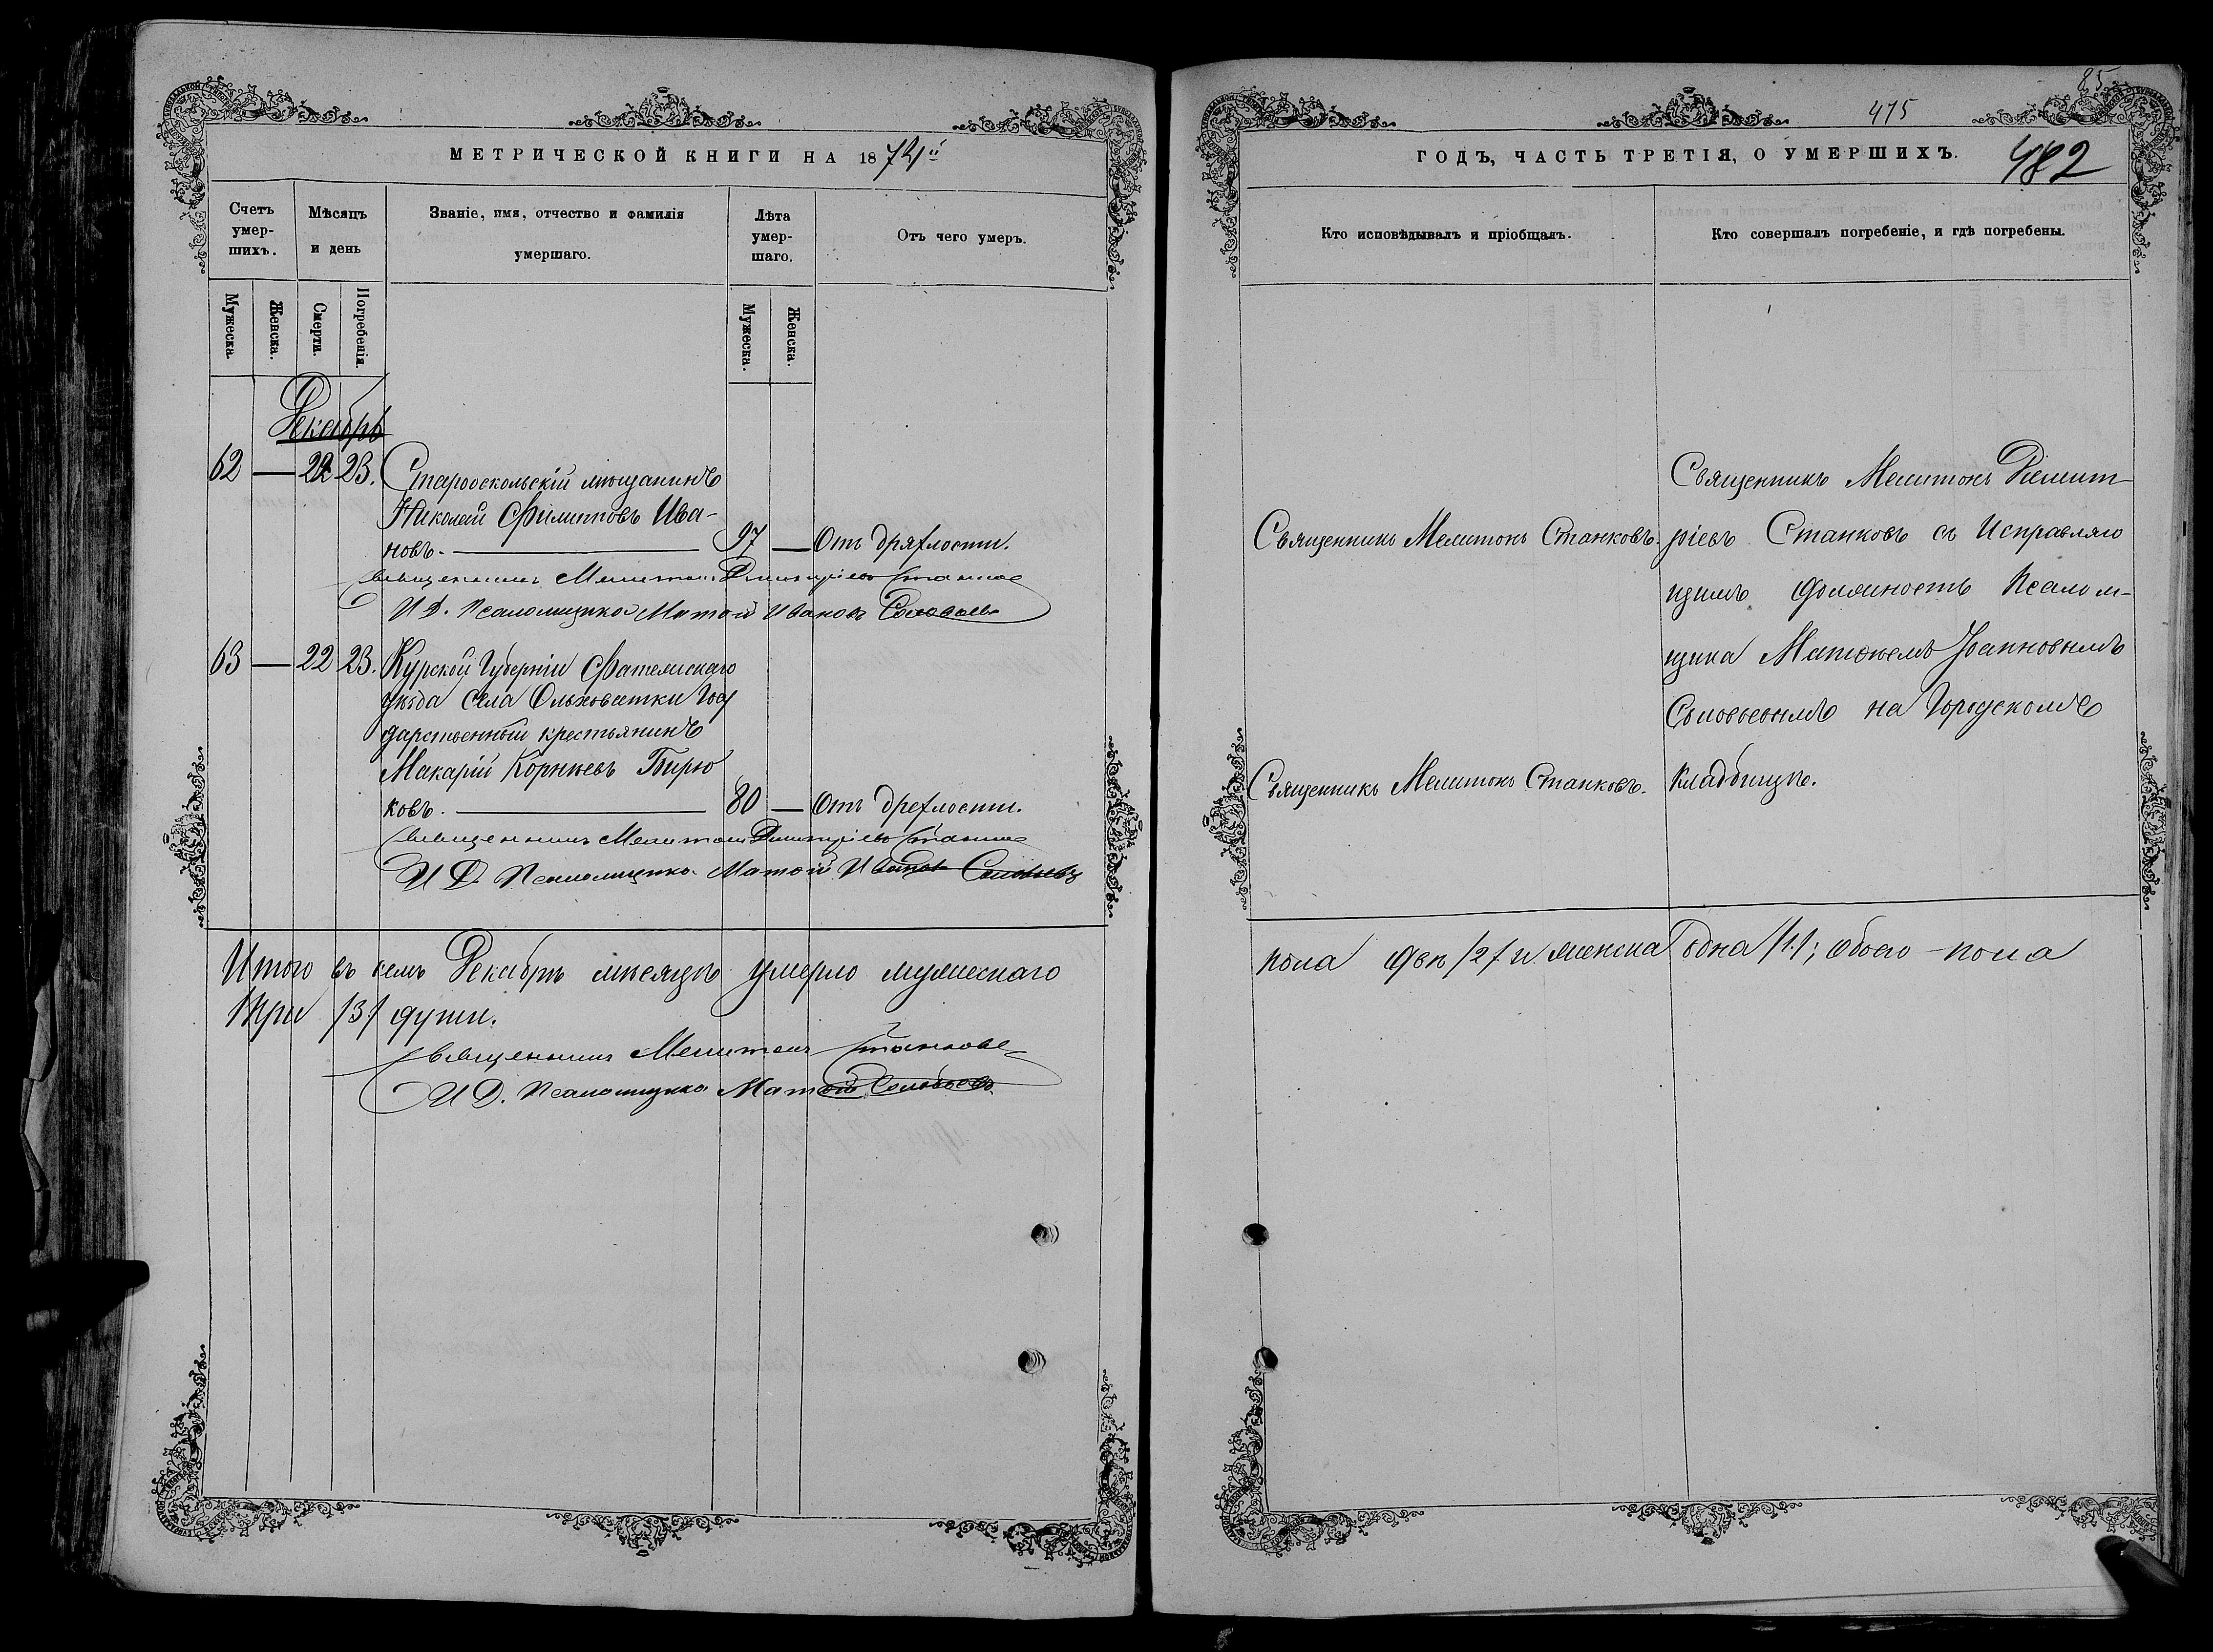 МЕТРИЧЕСКОЙ КНИГИ НА 1874й
Счетъ умер-шихъ.
Мѣсяцъ и день
Званіе, имя, отчество и фамилія умершаго.
Лѣта умер-шаго.
Отъ чего умеръ.
Мужеска.
Женска.
Смерти.
Погребенія.
Мужеска.
Женска.
Декабрь
62 — 22 23. Старооскольскій мѣщанинъ
Николай Филипповъ Ива-
новъ. — 97 — Отъ дряхлости.
Священникъ Мелитонъ Димитріевъ Станковъ
И Д. Псаломщика Матѳій Ивановъ Соловьевъ
63 — 22 23. Курской Губерніи Фатежскаго
уѣзда села Ольховатки Госу
дарственный крестьянинъ
Макарій Корнѣевъ Бирю
ковъ. — 80 — Отъ дрехлости.
Священникъ Мелитонъ Димитріевъ Станковъ
И Д. Псаломщика Матѳій Ивановъ Соловьевъ
Итого въ семъ Декабрѣ мѣсяцѣ умерло мужескаго
три /3/ души.
Священникъ Мелитонъ Станковъ
И Д. Псаломщика Матѳій Соловьевъ
85
475
ГОДЪ, ЧАСТЬ ТРЕТІЯ, О УМЕРШИХЪ.
482
Кто исповѣдывалъ и пріобщалъ.
Кто совершалъ погребеніе, и гдѣ погребены.
Священникъ Мелитонъ Станковъ.
Священникъ Мелитонъ Станковъ.
Священникъ Мелитонъ Димит-
ріевъ Станковъ съ Исправляю
щимъ Должность Псалом-
щика Матѳіемъ Іоанновымъ
Соловьевымъ на Городскомъ
кладбищѣ.
пола два /2/ и женска одна /1./; обоего пола